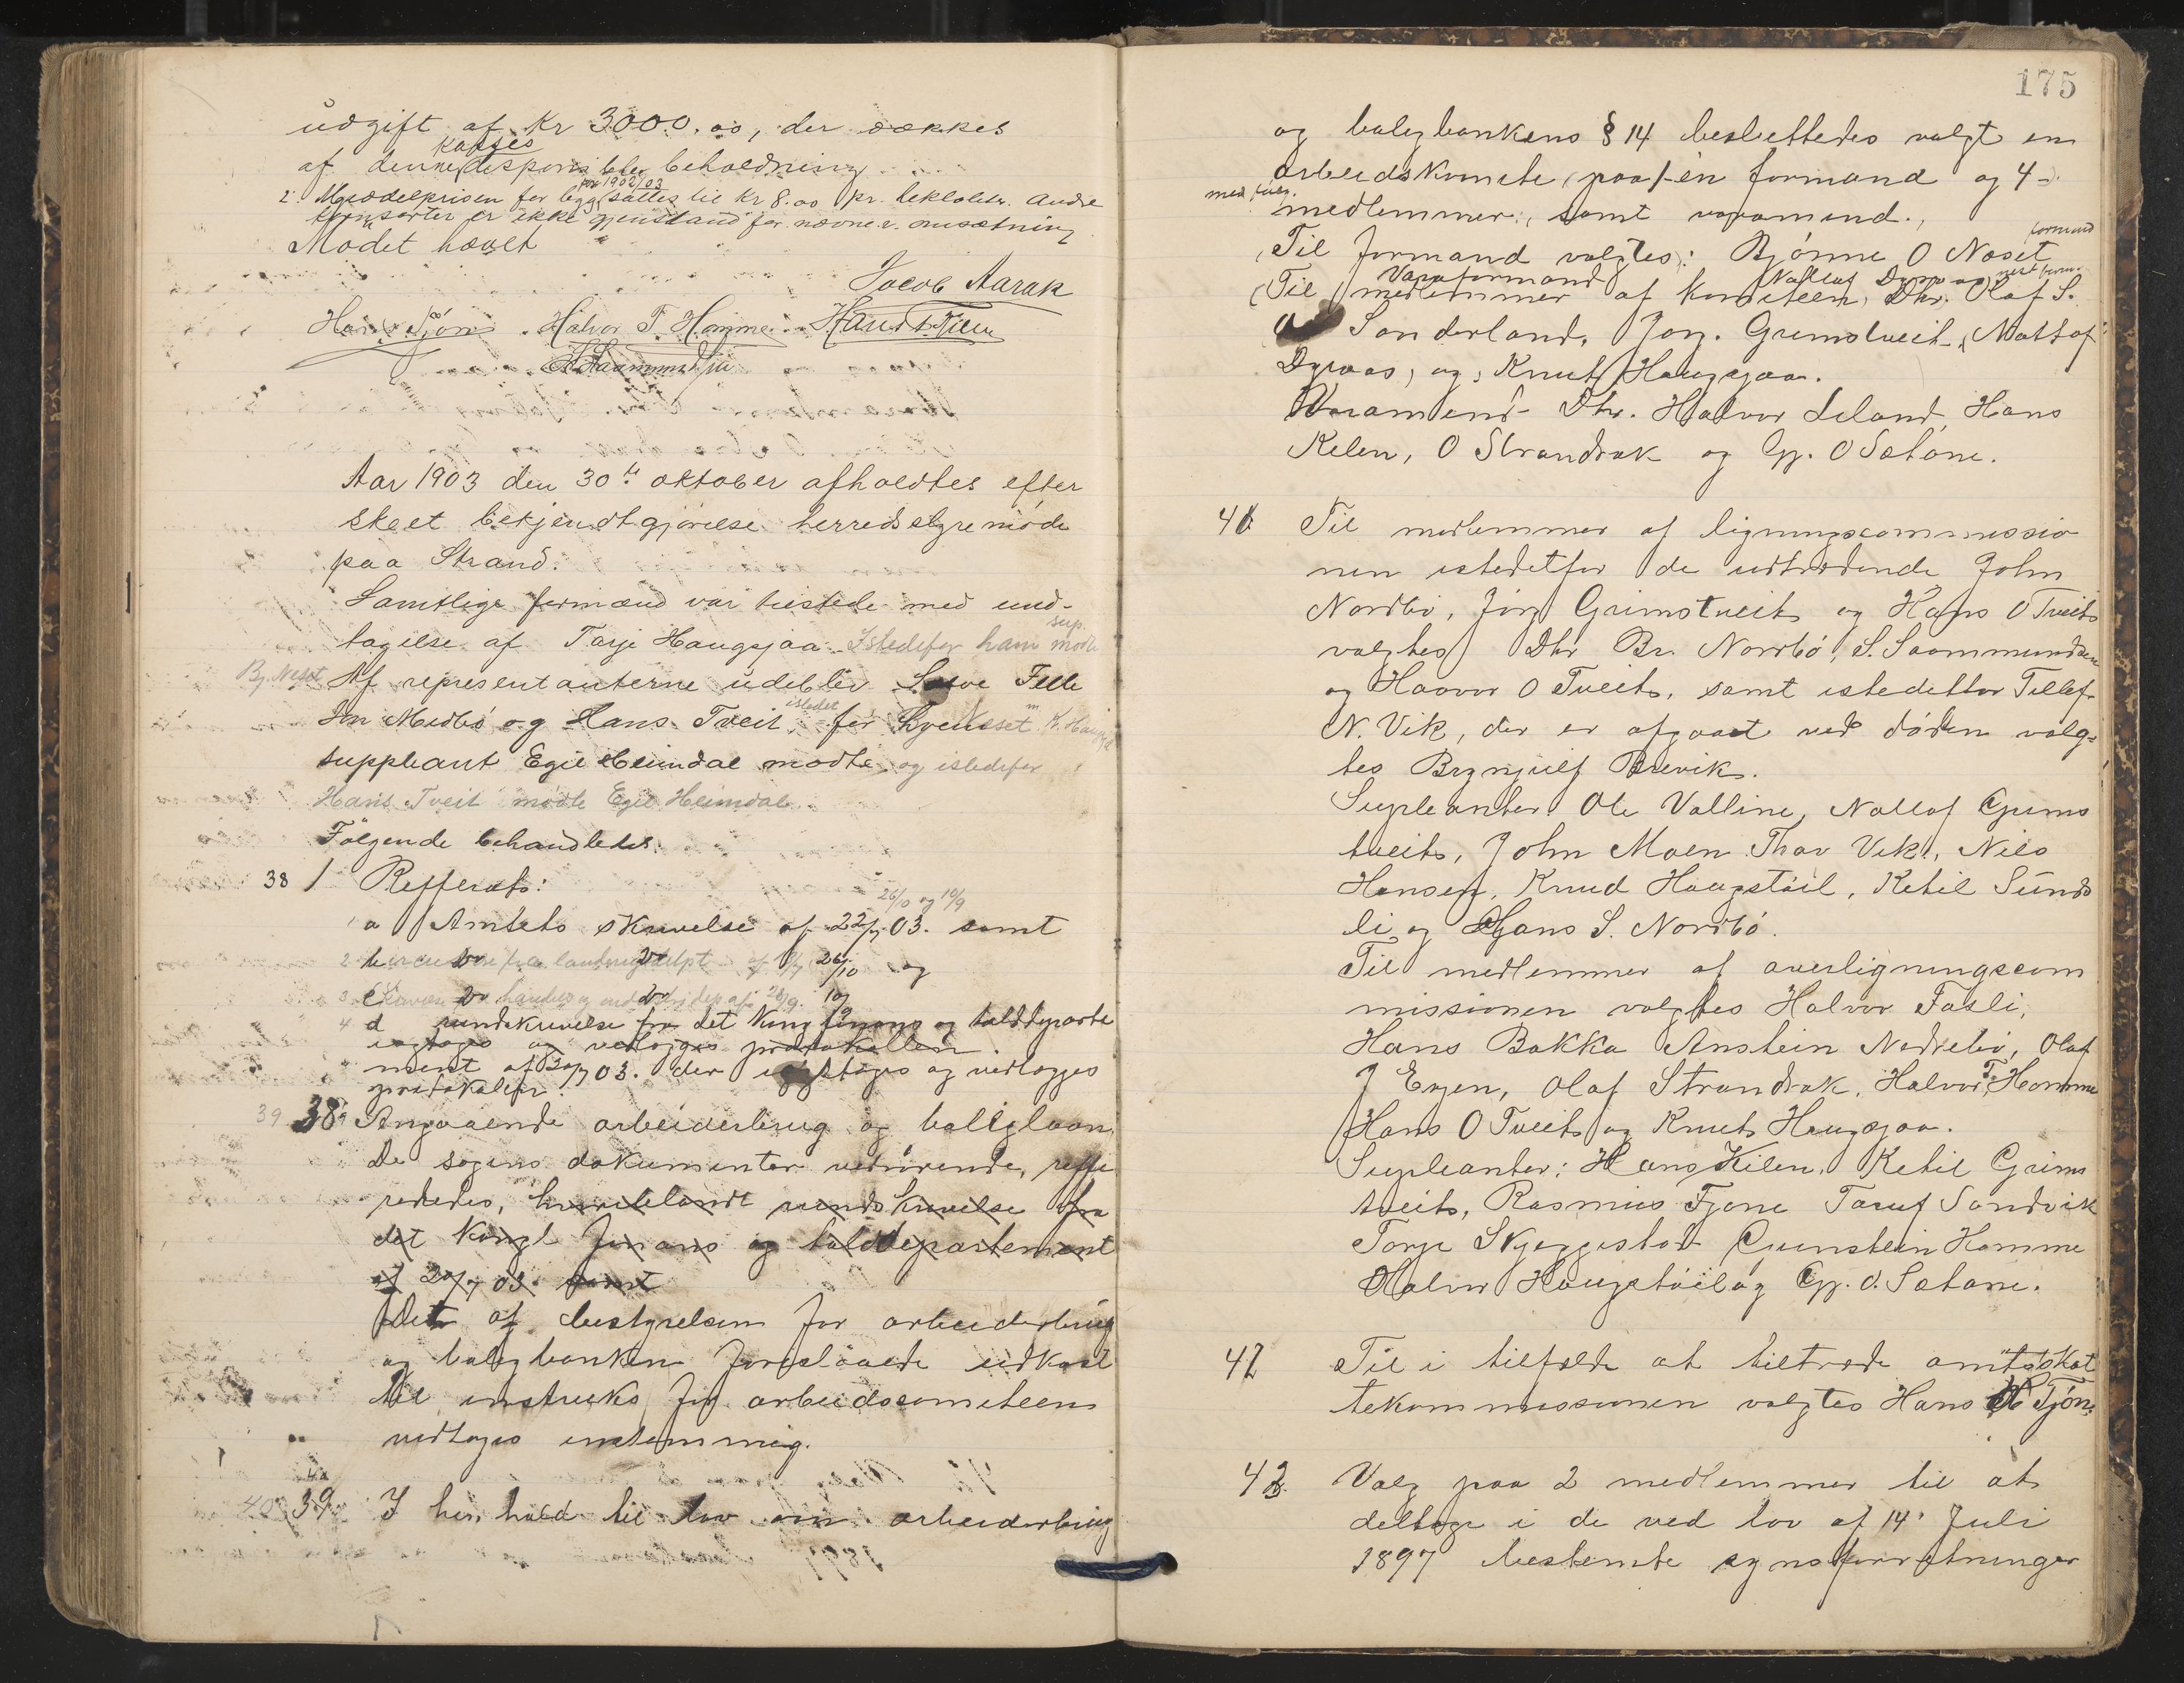 udgift af Kr 3000.00, der dækkes
kasses
af denne disponible beholdning
for 1902/03
2. Middelprisen for bygg sattes til Kr 8.00 pr. hektoliter. Andre
kornsorter er ikke gjenstand for nævnev. omsætning
Mødet hævet
Jacob Aarak
Hans Tjøn. Halvor T. Homme. Hans Kilen
S. Saammundsen
Aar 1903 den 30te oktober afholdtes efter
skeet bekjendtgjørelse herredsstyremøde
paa Strand.
Samtlige formænd var tilstede med und-
sup.
tagelse af Tarje Haugsjaa. Istedefor ham mødte
Bj. Neset Af representanterne udeblev Salve Felle
istedet
Jon Medbø og Hans Tveit, for
suppleant Egil Heimdal mødte og istedefor
Hans Tveit mødte Egil Heimdal.
Følgende behandledes:
38 1 Refferats:
26/10 og 19/9
a Amtets skrivelse af 22/7 03. samt
2 fra landbrugsdept af 26/10 og
3 handels og industridep af 28/9.
4 d rundskrivelse fra det Kong finans og tolddeparte
vedlægges protokollen.
ment af 20/7 03. der og vedlægges
protokolen.
39 38 Angaaende arbeiderbrug og boliglaan.
De sagens dokumenter vedrørende, reffe
reredes, hvoriblandt rundskrivelse fra
det Kongl finans og tolddepartement
af 20/7 03. samt
Det af bestyrelsen for arbeiderbrug
og boligbanken foreslaaede udkast
til instruks for arbeidscomiteen
vedtoges enstemmig.
40 39 I henhold til lov om arbeiderbrug
175
og boligbankens § 14 besluttedes valgt en
arbeidskomite paa 1 én formand og 4
medlemmer, samt varamænd.
formand
Til formand valgtes: Bjønne O Næset
Varaformand Nallof Dyraas
Til medlemmer af komiteen, Dhr. Olaf S.
Sanderland, Jørg. Grimstveit, Nallof
Dyraas, og Knut Haugsjaa.
Varamend Dhr. Halvor Leland, Hans
Kelen, O Strandrak og Gj. O Satane.
41 Til medlemmer af ligningscommissio
nen istedetfor de udtrædende John
Nordbø, Jørg Grimstveit og Hans O Tveit
valgtes Dhr Br. Nordbø, S. Saammundsen
og Haavor O Tveit, samt istedetfor Tellef
N. Vik, der er afgaaet ved døden valg-
tes Brynjulf Brevik.
Supleanter Ole Valline, Nallof Grims
tveit, John Moen Thor Vik, Nils
Hansen, Knud Haugstøil, Ketil Sunds
li og Hans S. Nordbø.
Til medlemmer af overligningscom
missionen valgtes Halvor Fasli,
Hans Bakka Anstein Nedrebø, Olaf
J Enjen, Olaf Strandrak, Halvor T. Homme
Hans O Tveit og Knut Haugsjaa.
Supleanter: Hans Kilen, Ketil Grims
tveit, Rasmus Fjone Taruf Sandvik
Torje Skjeggestad Gunstein Homme
Halvor Haugstøil og Gj. O. Satane.
42 Til i tilfælde at tiltræde amtsskat
tekommissionen valgtes Hans Tjøn.
43 Valg paa 2 medlemmer til at
deltage i de ved lov af 14. Juli
1897 bestemte synsforretninger